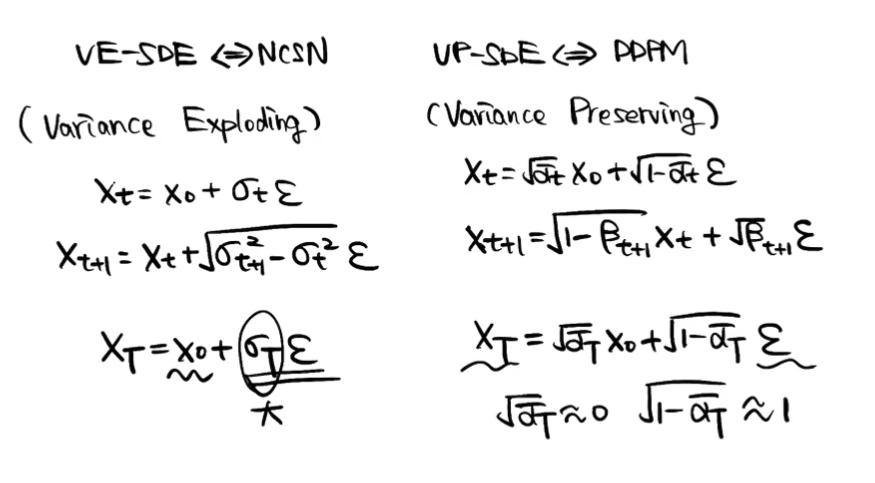 VE-SDE ⟺ NCSN
(Variance Exploding)
Xt = X0 + σt ε
Xt+1 = Xt + √(σ²t+1 − σt²) ε
XT = X0 + σT ε
大
VP-SDE ⟺ DDPM
(Variance Preserving)
Xt = √ᾱt X0 + √(1−ᾱt) ε
Xt+1 = √(1−βt+1) Xt + √βt+1 ε
XT = √ᾱT X0 + √(1−ᾱT) ε
√ᾱT ≈ 0 √(1−ᾱT) ≈ 1